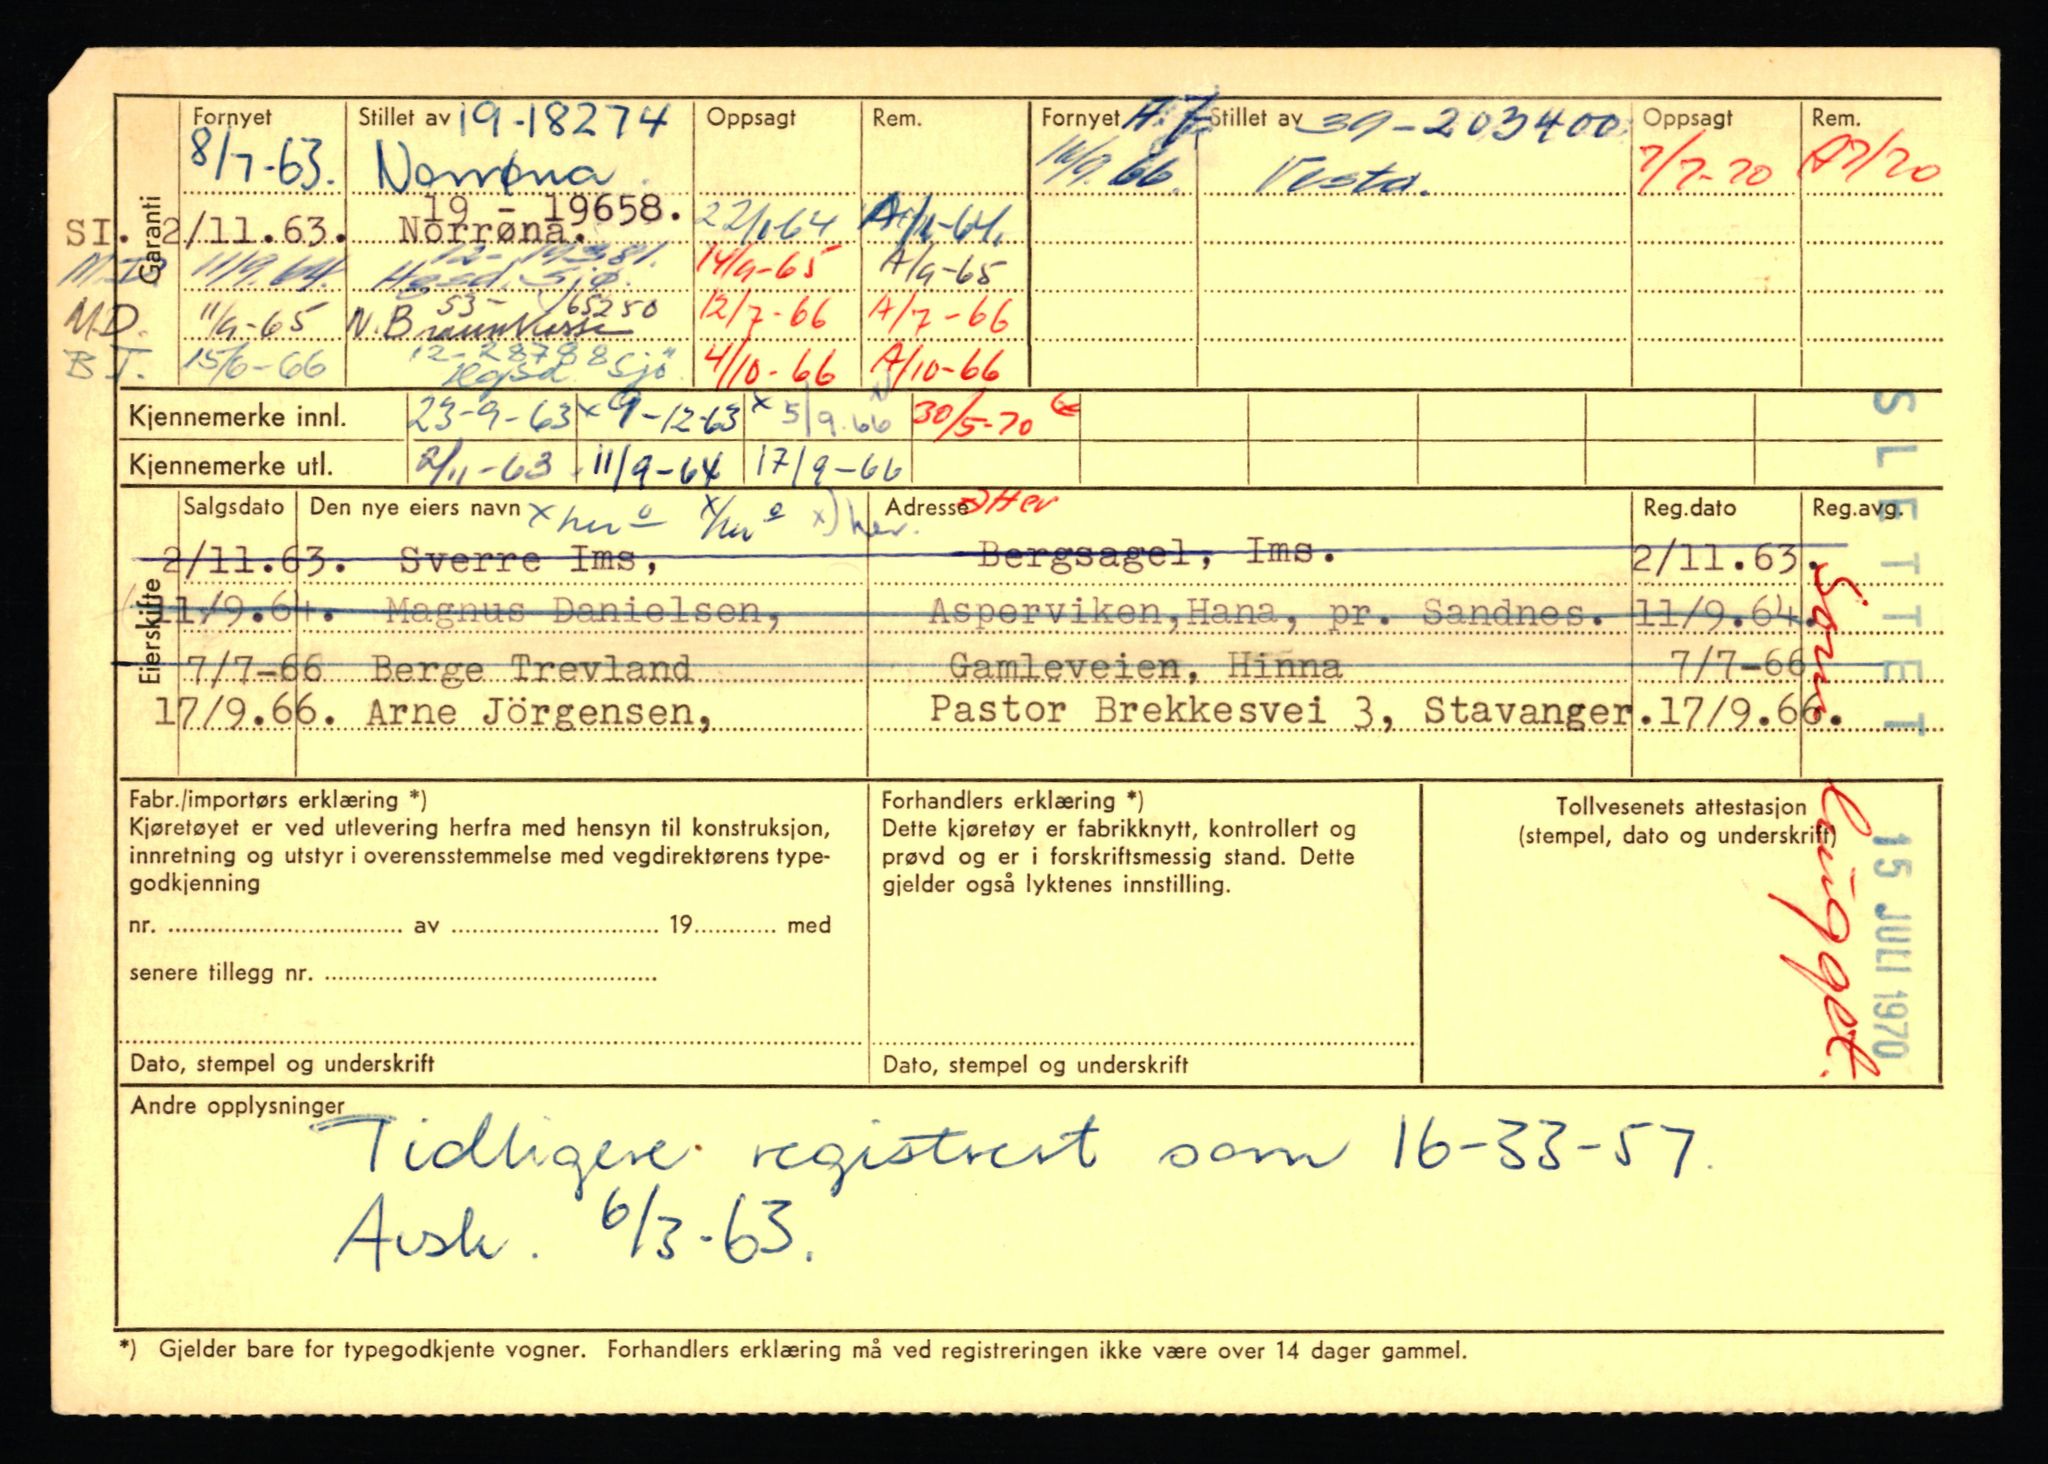 Garanti
Fornyet Stillet av 19-18274 Oppsagt Rem. Fornyet Stillet av 39-203400 Oppsagt Rem.
8/7-63. Norrøna. 14/9.66. Vesta. 7/7-70 A7/70
19 - 19658.
SI. 2/11.63. Norrøna. A/11-64.
11/9.64. Hgsd. Sjø. 14/9-65 A/9-65
53- 165250
M.D. 11/9-65 12/7-66 A/7-66
12-28788
B.T. 15/6-66 Hgsd. Sjö. 4/10-66 A/10-66
Kjennemerke innl. 23-9-63 x 9-12-63 x 5/9.66 30/5-70
Kjennemerke utl. 2/11-63 11/9-64 17/9-66
Eierskifte
Salgsdato Den nye eiers navn Adresse Reg.dato Reg.avg.
2/11.63. Sverre Ims, Bergsagel, Ims. 2/11.63.
11/9.64. Magnus Danielsen, Asperviken,Hana, pr. Sandnes. 11/9.64.
7/7-66 Berge Trevland Gamleveien, Hinna 7/7-66
17/9.66. Arne Jörgensen, Pastor Brekkesvei 3, Stavanger. 17/9.66.
SLETTET
15 JULI 1970
Fabr./importørs erklæring *)
Kjøretøyet er ved utlevering herfra med hensyn til konstruksjon,
innretning og utstyr i overensstemmelse med vegdirektørens type-
godkjenning
nr. av 19 med
senere tillegg nr.
Dato, stempel og underskrift
Forhandlers erklæring *)
Dette kjøretøy er fabrikknytt, kontrollert og
prøvd og er i forskriftsmessig stand. Dette
gjelder også lyktenes innstilling.
Dato, stempel og underskrift
Tollvesenets attestasjon
(stempel, dato og underskrift)
Andre opplysninger
Tidligere registrert som 16-33-57.
Avsk. 6/3-63.
*) Gjelder bare for typegodkjente vogner. Forhandlers erklæring må ved registreringen ikke være over 14 dager gammel.